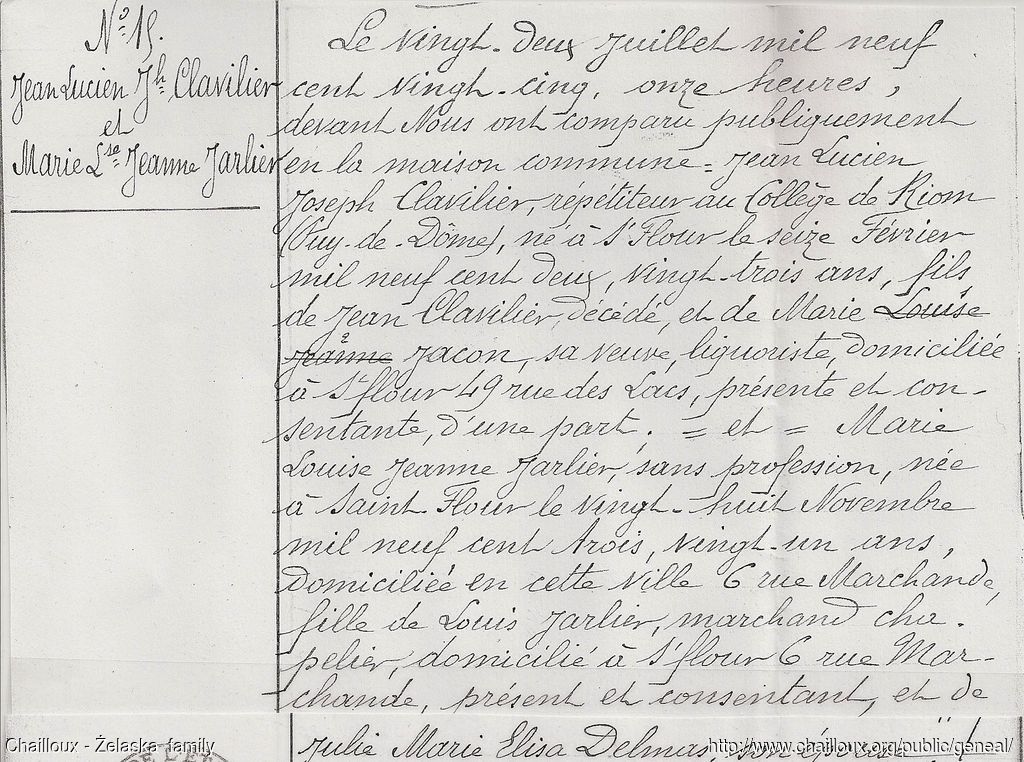 N° 15.
Jean Lucien Jh Clavilier
et
Marie Lse Jeanne Jarlier
Le vingt-deux juillet mil neuf
cent vingt-cinq, onze heures,
devant Nous ont comparu publiquement
en la maison commune = Jean Lucien
Joseph Clavilier, répétiteur au Collège de Riom
(Puy-de-Dôme), né à St Flour le seize Février
mil neuf cent deux, vingt-trois ans, fils
de Jean Clavilier, décédé, et de Marie Louise
Jeanne Jacon, sa veuve, liquoriste, domiciliée
à St flour 49 rue des Lacs, présente et con-
sentante, d'une part, = et = Marie
Louise Jeanne Jarlier, sans profession, née
à Saint-Flour le vingt-huit Novembre
mil neuf cent trois, vingt-un ans,
domiciliée en cette ville 6 rue Marchande,
fille de Louis Jarlier, marchand cha-
pelier, domicilié à St flour 6 rue Mar-
chande, présent et consentant, et de
Julie Marie Elisa Delmas, son épouse
Chailloux - Żelaska family
http://www.chailloux.org/public/geneal/